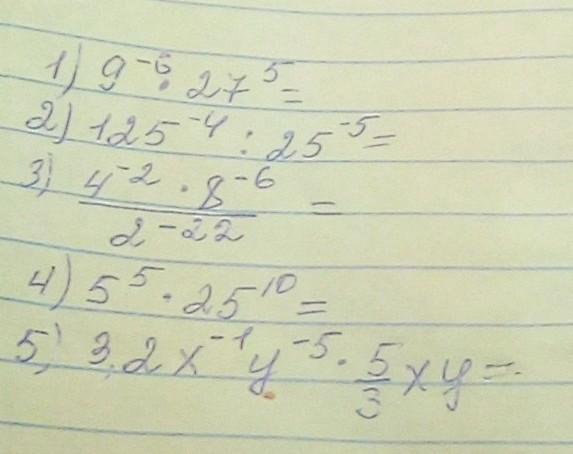 1) 9⁻⁶ · 27⁵ =
2) 125⁻⁴ : 25⁻⁵ =
3) (4⁻² · 8⁻⁶)/(2⁻²²) =
4) 5⁵ · 25¹⁰ =
5) 3,2x⁻¹y⁻⁵ · 5/3 xy =